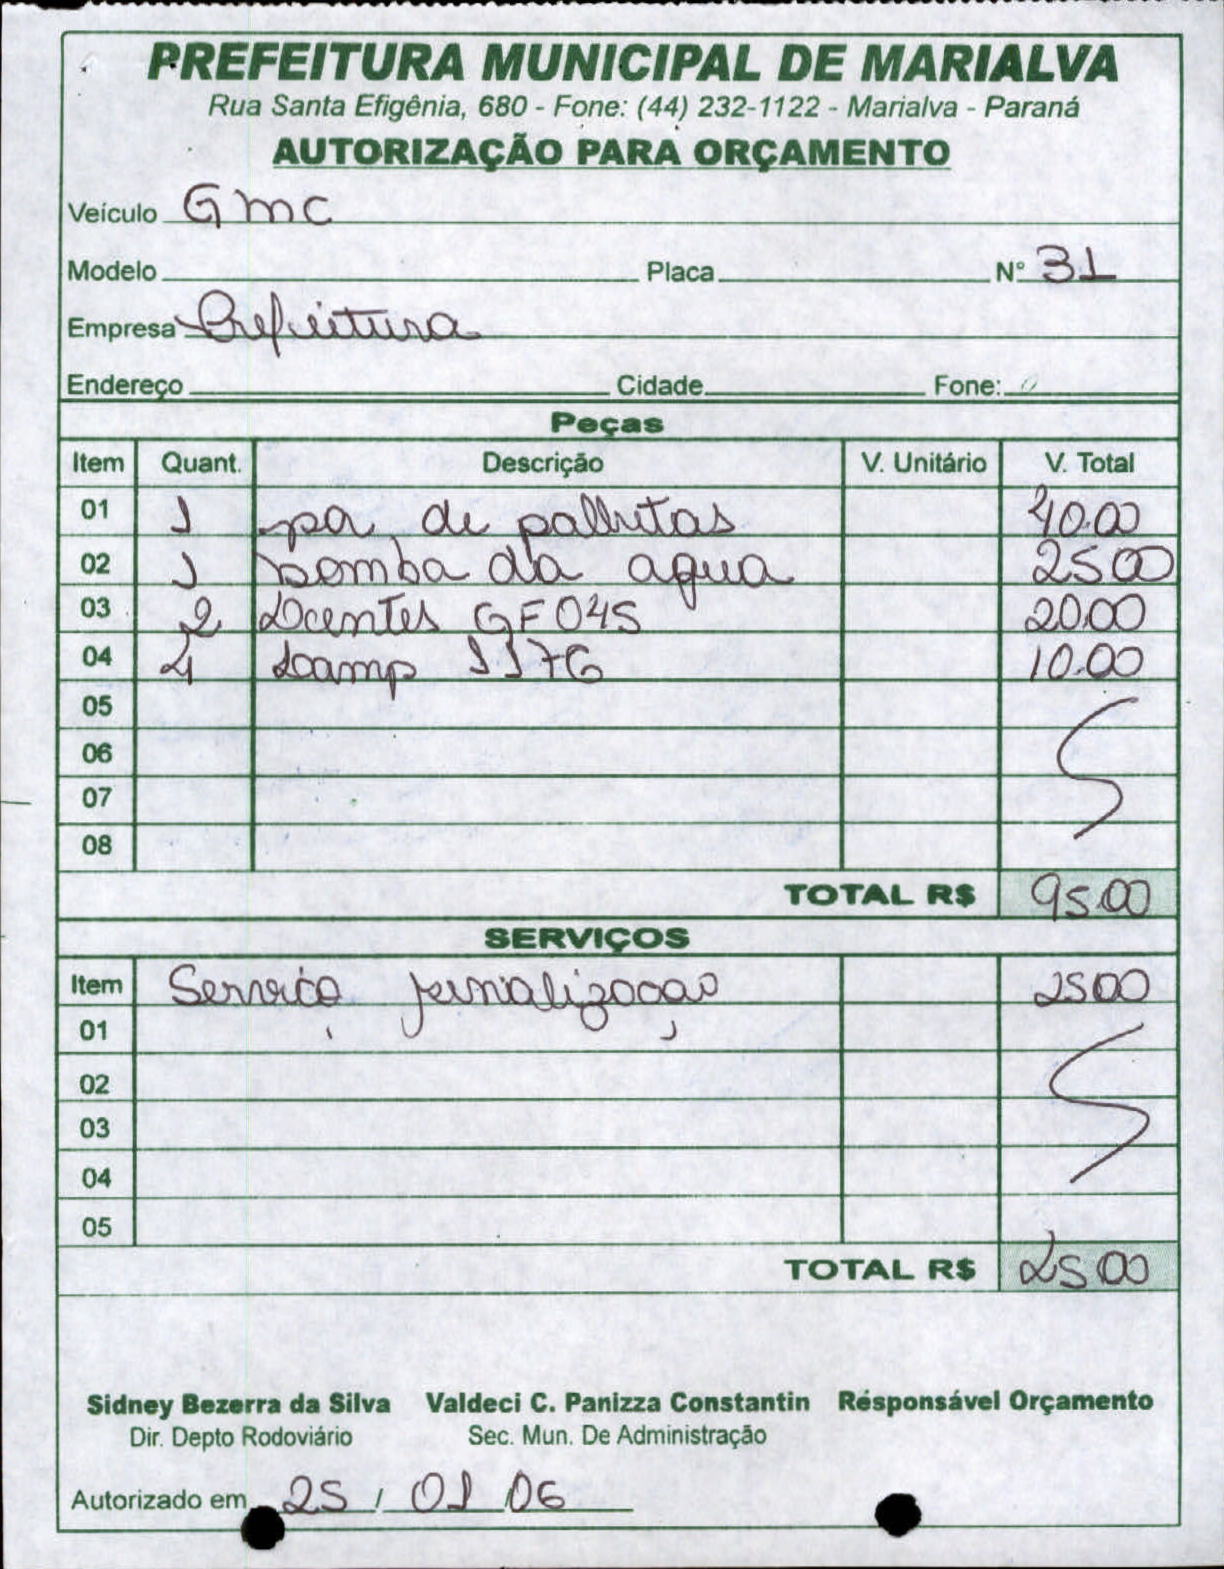 PREFEITURA MUNICIPAL DE MARIALVA
Rua Santa Efigênia, 680 - Fone: (44) 232-1122 - Marialva - Paraná
AUTORIZAÇÃO PARA ORÇAMENTO
Veículo Gmc
Modelo Placa Nº 31
Empresa Prefeitura
Endereço Cidade Fone:
Peças
Item Quant. Descrição V. Unitário V. Total
01 1 pa de palhetas 40.00
02 1 bomba da agua 25 00
03 2 GF 045 20.00
04 4 Lamp 1176 10.00
05
06
07
08
TOTAL R$ 95.00
SERVIÇOS
Item Serviço 25 00
01
02
03
04
05
TOTAL R$ 25 00
Sidney Bezerra da Silva Valdeci C. Panizza Constantin Responsável Orçamento
Dir. Depto Rodoviário Sec. Mun. De Administração
Autorizado em 25 / 01 06